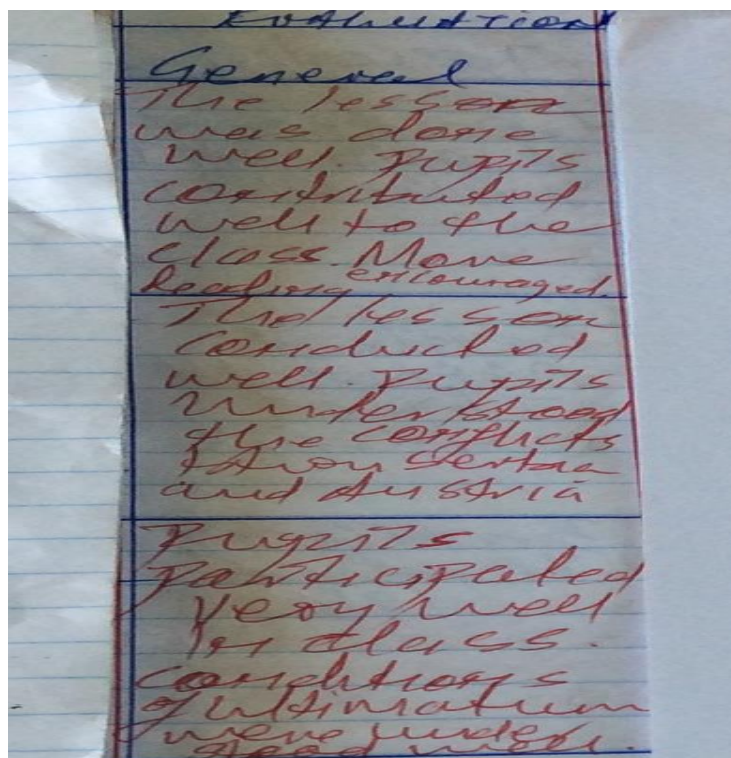 Evaluation
General
The lesson
was done
well. Pupils
contributed
well to the
class. More
Reading encouraged.
The lesson
conducted
well. Pupils
understood
the conflicts
btwn Serbia
and Austria
Pupils
participated
very well
in class.
conditions
of ultimatum
were under
stood well.